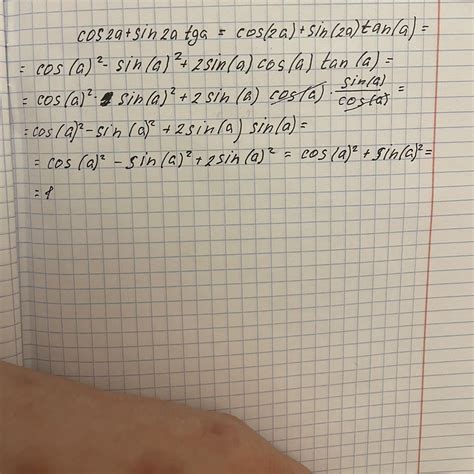 cos2a+sin2a tga = cos(2a)+sin(2a)tan(a)=
= cos(a)²-sin(a)²+2sin(a)cos(a)tan(a)=
= cos(a)²-sin(a)²+2sin(a) cos(a)·sin(a)/cos(a)=
=cos(a)²-sin(a)²+2sin(a)sin(a)=
= cos(a)²-sin(a)²+2sin(a)² = cos(a)²+sin(a)²=
=1